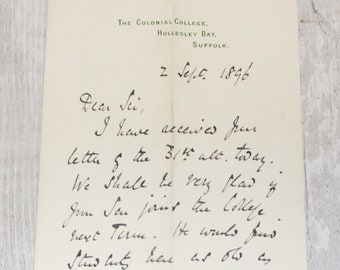 The Colonial College,
Hollesley Bay,
Suffolk.
2 Sept. 1896
Dear Sir,
I have received your
letter of the 31st ult. today.
We shall be very glad if
your Son joins the College
next Term. He would find
Students here as old as